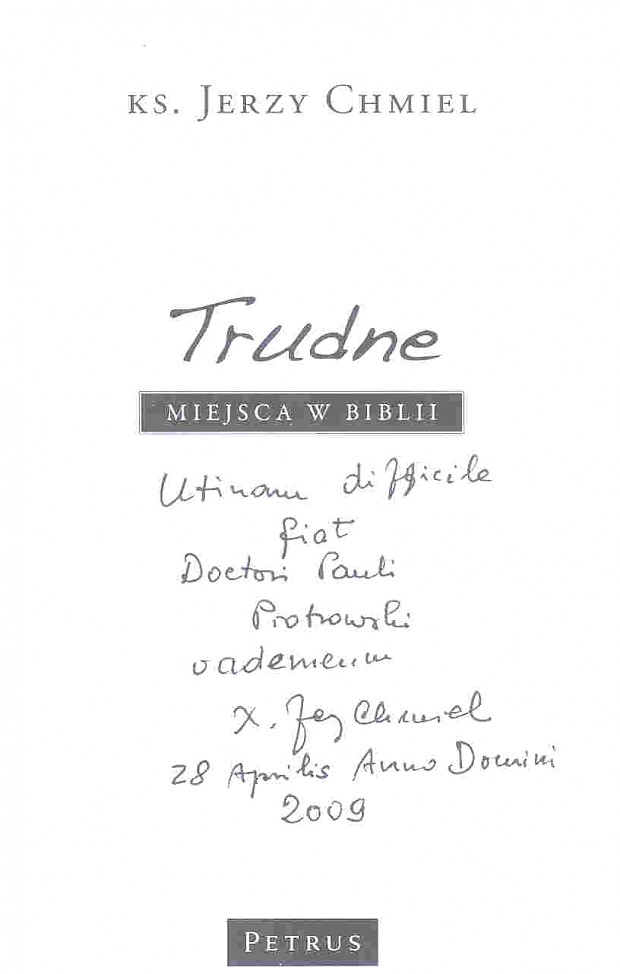 KS. JERZY CHMIEL
Trudne
MIEJSCA W BIBLII
Utinam difficile
fiat
Doctori Pauli
Piotrowski
vademecum
X. Jerzy Chmiel
28 Aprilis Anno Domini
2009
PETRUS